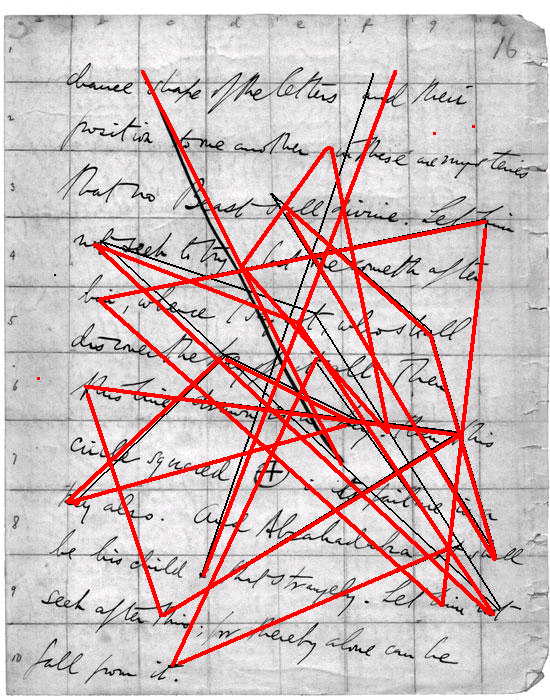 c d e f g h
16
1
chance shape of the letters and their
2
position to one another in these are mysteries
3
that no Beast shall divine. Let him
4
not seek to try but one cometh after
5
him, whence I say not who shall
discover the Key of it all Then
6
this line drawn is a key: then this
7
circle squared ⊕ in its failure is a
8
key also. And Abrahadabra It shall
be his child & that strangely. Let him not
9
seek after this; for thereby alone can he
10
fall from it.